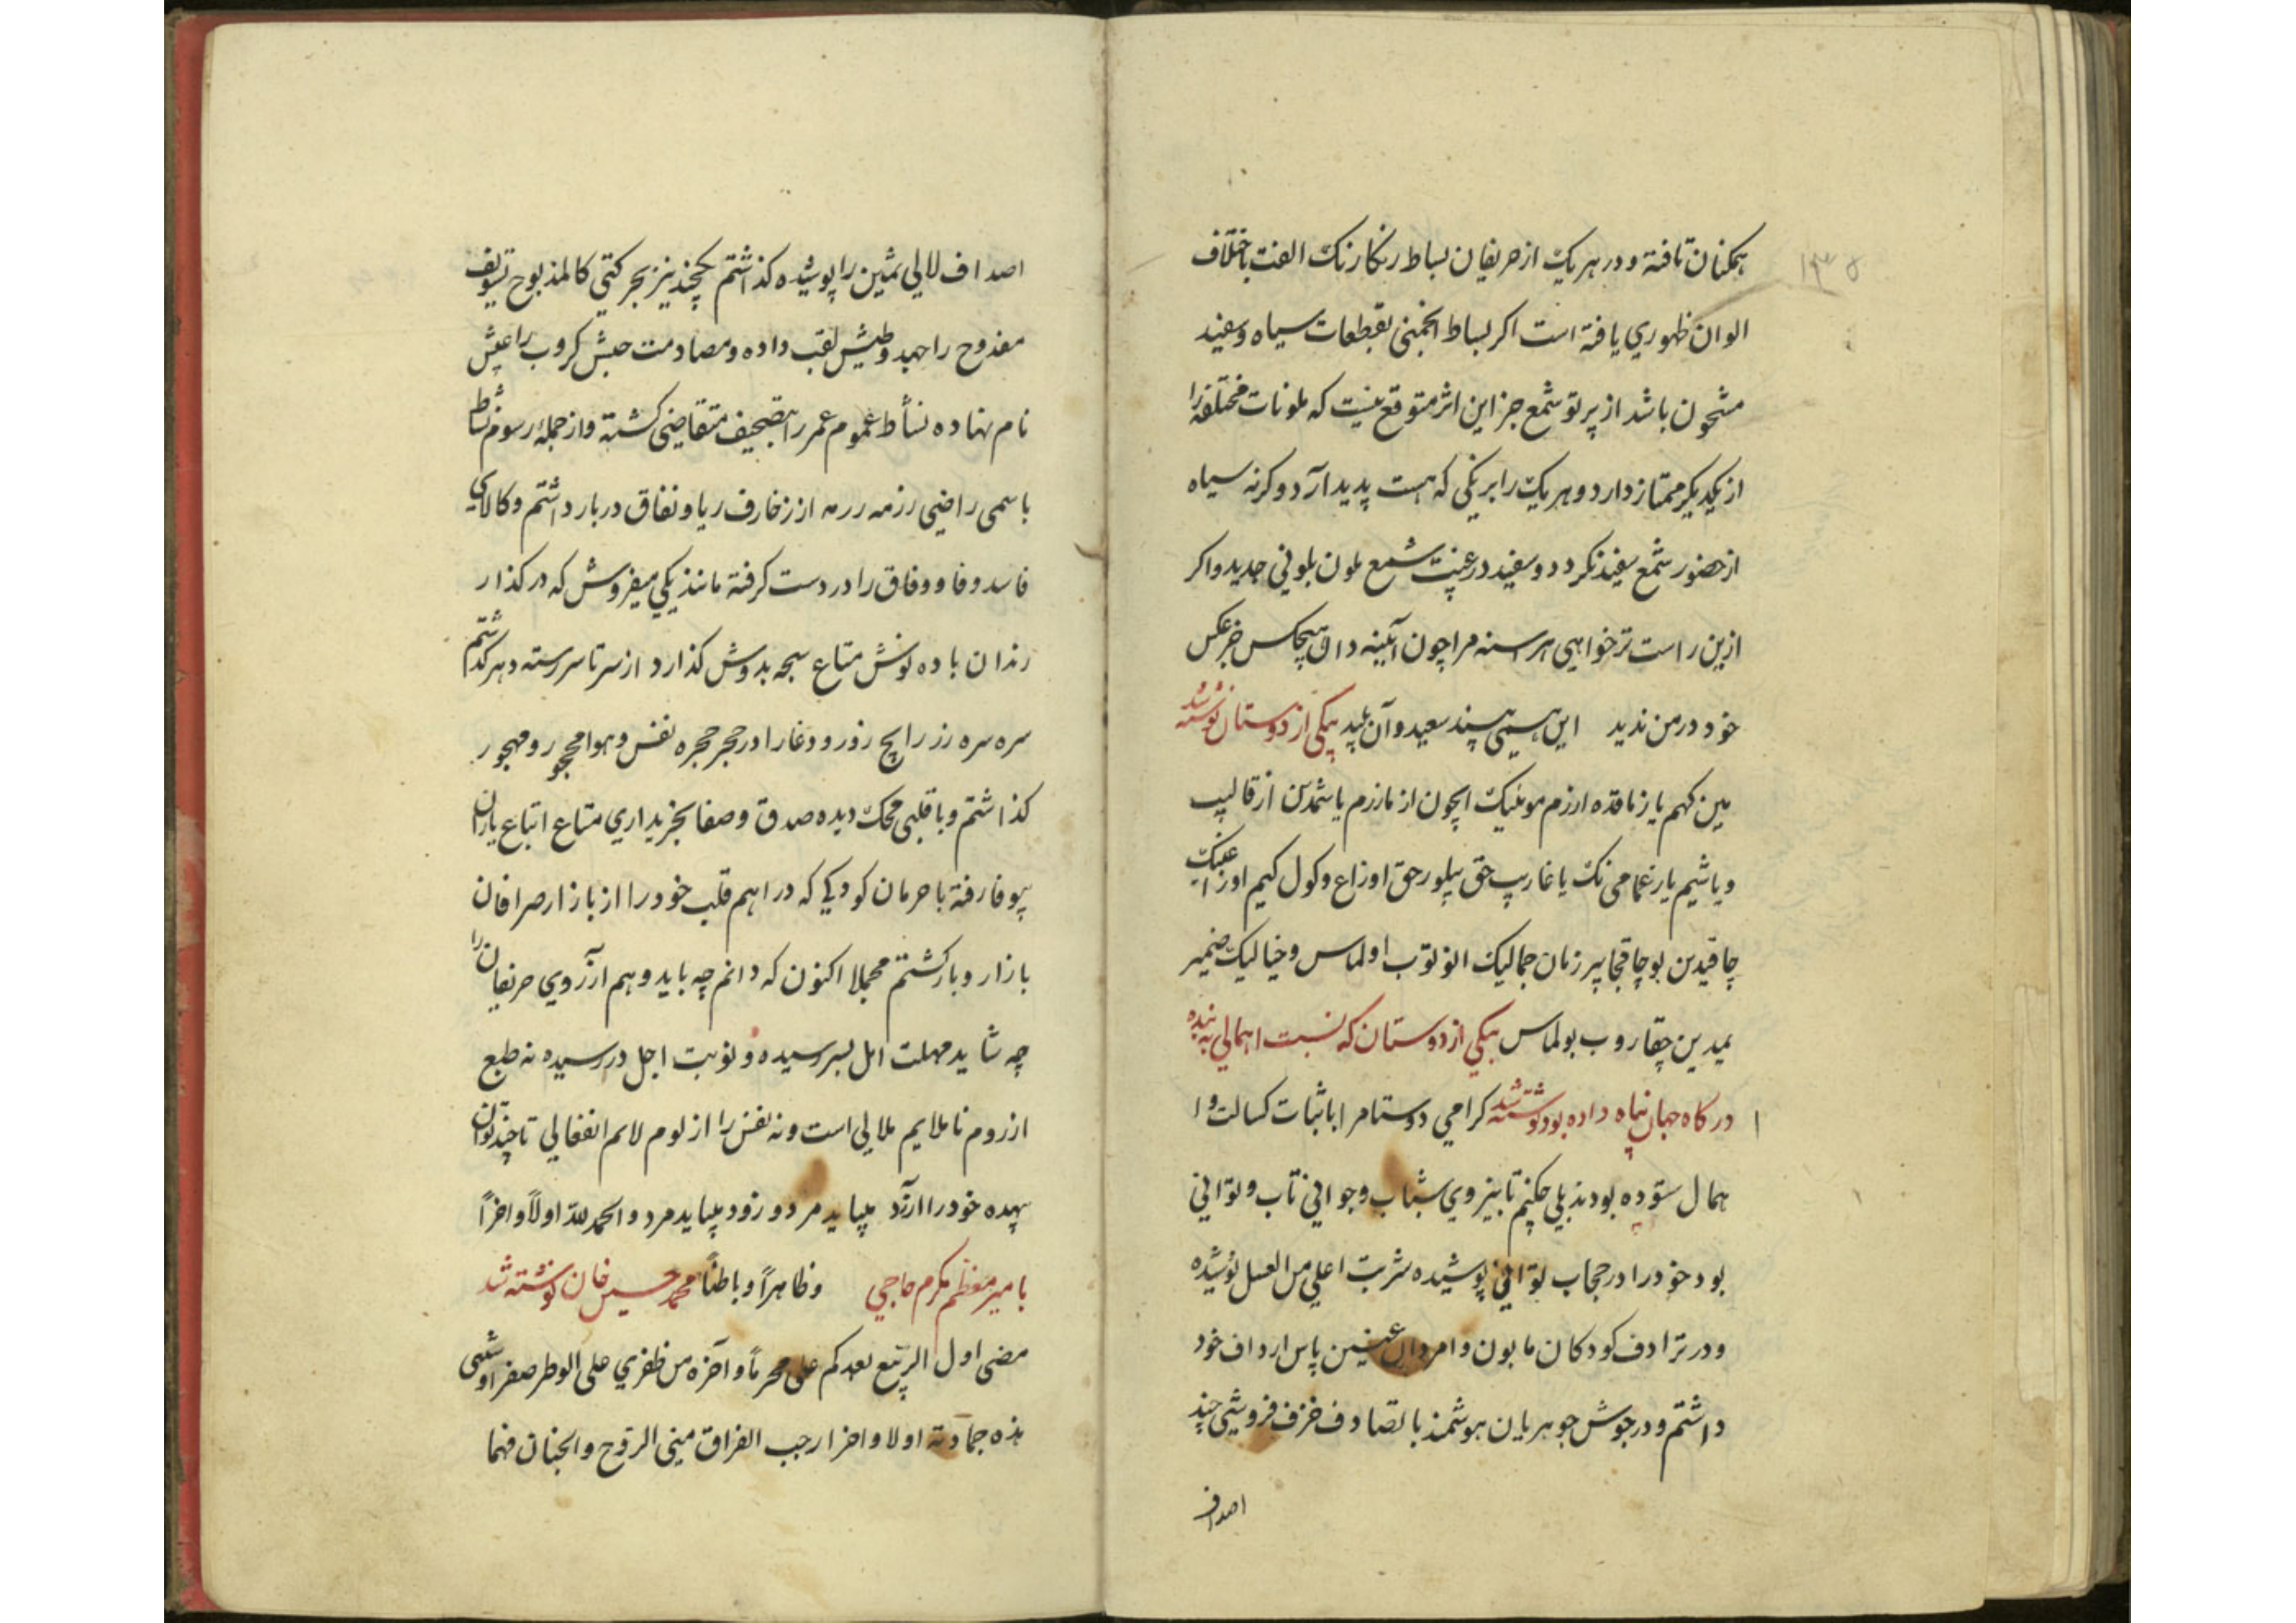 همکنان تافته و در هر یک از حریفان بساط رنگارنک الفت باختلاف
الوان ظهوری یافته است اکر بساط انجمنی بقطعات سیاه و سفید
مشحون باشد از پرتو شمع جز این اثر متوقع نیست که ملونات مختلفه را
از یکدیکر ممتاز دارد و هر یک را برنکی که هست پدید آرد و کرنه سیاه
از حضور شمع سفید نکردد و سفید در غیبت شمع ملون بلونی جدید و اکر
ازین راست تر خواهی هر اسنه مرا چون آیینه دان هیچکس جز عکس
خود در من ندید این همی بیند سعید و آن پلید بیکی از دوستان نوشته شد
از قالیپ
و یاشیم یارغمامی نک یا غاریپ حق بیلور حق اوزاع و کول کیم اوزا
چاقیدین بو چاققجا بیر زمان جمالیک اونوتوب اولماس و خیالیک ضمیر
یمیدین چقاروب بولماس بیکی از دوستان که نسبت اهمالی به بنده
درکاه جهان پناه داده بود نوشته شد کرامی دوستا مرا باثبات کسالت و ا
همال ستوده بودند بلی چکنم تا بنیروی شباب و جوانی تاب و توانی
بود خود را در حجاب توانی پوشیده شربت اعلی من العسل نوشیده
و در ترادف کودکان مابون و امردان عنین پاس ارداف خود
داشتم و در جوش جوهریان هوشمند با تصادف خزف فروشی چند
اصداف
اصداف لالی ثمین را پوشیده کذاشتم یکچند نیز بجر کتی کالمذبوح
مقدوح را جهد و طیش لقب داده و مصادمت جیش کروب را عیش
نام نهاده نشأط عموم عمر را بتصحیف متقاضی کشته و از جمله رسوم نشاط
باسمی راضی رزمه رزمه از زخارف ریا و نفاق در بار داشتم و کالای
فاسد وفا و وفاق را در دست کرفته مانند یکی میفروش که در کذار
رندان باده نوش متاع سبحه بدوش کذارد از سر تا سر رسته دهر کذشتم
سره سره زر رایج زور و دغا را در حجر حجره نفس و هوا محجور و مهجور
کذاشتم و با قلبی محک دیده صدق و صفا بخریداری متاع اتباع یاران
بیوفا رفته با حرمان کودکی که دراهم قلب خود را از بازار صرافان
باز آرد باز کشتم مجملا اکنون که دانم چه باید و هم آرزوی حریفان را
چه شاید مهلت امل بسر رسیده و نوبت اجل در رسیده نه طبع
از روم ناملایم ملالی است و نه نفس را از لوم لائم انفعالی تا چند توان
بیهده خود را آزرد میباید مرد و زود میباید مرد و الحمد لله اولاً و اخراً
و ظاهراً و باطناً بامیر معظم مکرم حاجی محمد حسین خان نوشته شد
مضی اول الربیع بعدکم علی محرماً و آخره من ظفری علی الوطر صفر او شتی
هذه جمادته اولا و اخرا رجب الفراق منی الروح و الجنان فهما